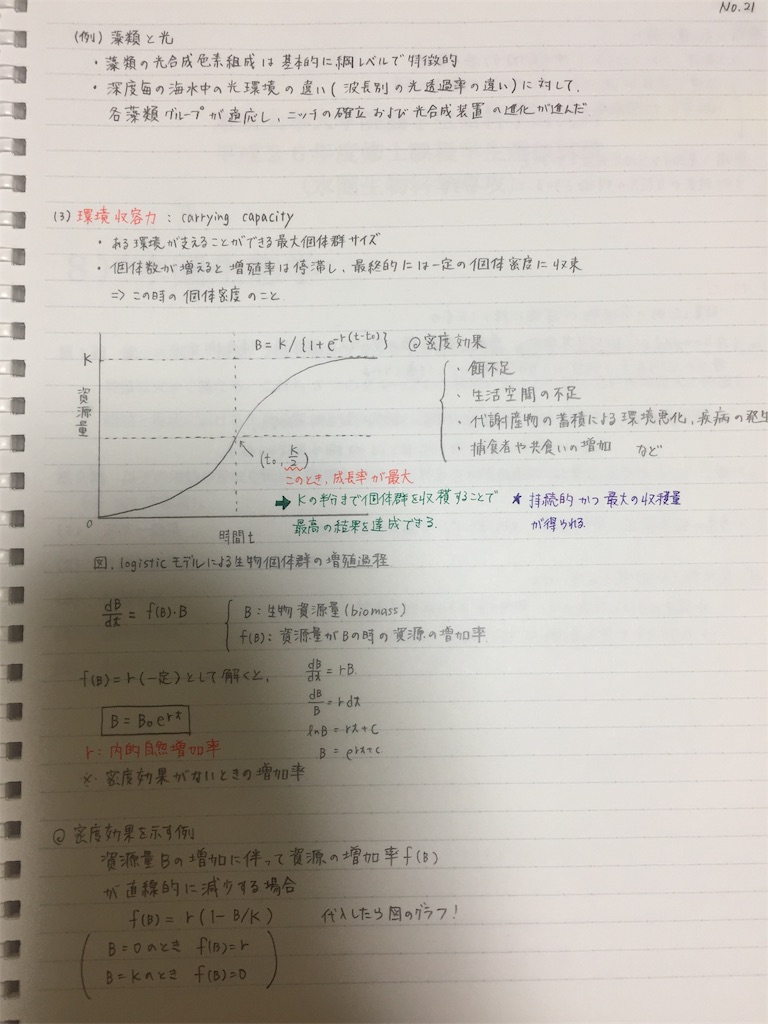 No.21
(例) 藻類と光
・藻類の光合成色素組成は基本的に綱レベルで特徴的
・深度毎の海水中の光環境の違い(波長別の光透過率の違い)に対して、
各藻類グループが適応し、ニッチの確立および光合成装置の進化が進んだ
(3) 環境収容力 : carrying capacity
・ある環境が支えることができる最大個体群サイズ
・個体数が増えると増殖率は停滞し、最終的には一定の個体密度に収束
⇒ この時の個体密度のこと
B = K / {1+e^{-r(t-t₀)}}
K
資源量
0
時間t
(t₀, K/2)
このとき、成長率が最大
➡ Kの半分まで個体群を収穫することで
最高の結果を達成できる.
★ 持続的かつ最大の収穫量
が得られる
◎密度効果
・餌不足
・生活空間の不足
・代謝産物の蓄積による環境悪化、疾病の発生
・捕食者や共食いの増加 など
図. logisticモデルによる生物個体群の増殖過程
dB/dt = f(B)・B
B : 生物資源量(biomass)
f(B) : 資源量がBの時の資源の増加率
f(B) = r (一定) として解くと、
dB/dt = rB
dB/B = rdt
lnB = rt+c
B = e^{rt+c}
B = B₀e^{rt}
r : 内的自然増加率
※ 密度効果がないときの増加率
◎ 密度効果を示す例
資源量Bの増加に伴って資源の増加率f(B)
が直線的に減少する場合
f(B) = r(1-B/K) 代入したら図のグラフ!
B=0のとき f(B)=r
B=Kのとき f(B)=0